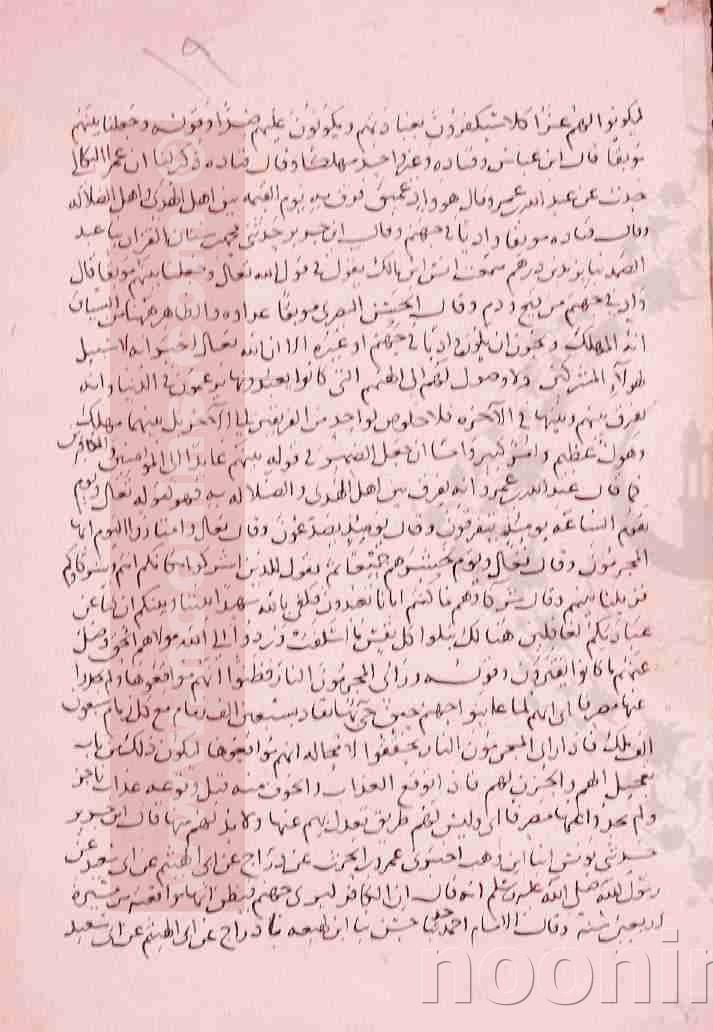 ١٩
ليكونوا لهم عزا كلا سيكفرون بعبادتهم ويكونون عليهم ضدا وقوله وجعلنا بينهم
موبقا قال ابن عباس وقتادة وغير واحد مهلكا وقال قتادة ذكر لنا ان عمرا البكالي
حدث عن عبد الله بن عمرو قال هو واد عميق فرق به يوم القيمة بين اهل الهدى واهل الضلالة
وقال قتادة موبقا واديا في جهنم وقال ابن جرير حدثني محمد بن سنان القزاز ثنا عبد
الصمد ثنا يزيد بن درهم سمعت انس بن مالك يقول في قول الله تعالى وجعلنا بينهم موبقا قال
واد في جهنم من قيح ودم وقال الحسن البصري موبقا عداوة والظاهر ههنا من السياق
انه المهلك ويجوز ان يكون واديا في جهنم او غيره الا ان الله تعالى اخبر انه لا سبيل
لهولاء المشركين ولا وصول لهم الى الهتهم التي كانوا يعبدونها يزعمون في الدنيا وانه
يفرق بينهم وبينها في الآخرة فلا خلاص لواحد من الفريقين الى الآخر بل بينهما مهلك
وهول عظيم وامر كبير واما ان جعل الضمير في قوله بينهم عايدا الى المومنين والكافرين
كما قال عبد الله بن عمرو انه يفرق بين اهل الهدى والضلالة به فهو كقوله تعالى ويوم
تقوم الساعة يومئذ يتفرقون وقال يومئذ يصدعون وقال تعالى وامتازوا اليوم ايها
المجرمون وقال تعالى ويوم نحشرهم جميعا ثم نقول للذين اشركوا مكانكم انتم وشركاوكم
فزيلنا بينهم وقال شركاوهم ما كنتم ايانا تعبدون فكفى بالله شهيدا بيننا وبينكم ان كنا عن
عبادتكم لغافلين هنالك تبلوا كل نفس ما اسلفت وردوا الى الله مولاهم الحق وضل
عنهم ما كانوا يفترون وقوله وراى المجرمون النار فظنوا انهم مواقعوها ولم يجدوا
عنها مصرفا اى انهم لما عاينوا جهنم حين جيء بها تقاد بسبعين الف زمام مع كل زمام سبعون
الف ملك فاذا راى المجرمون النار تحققوا لا محالة انهم مواقعوها ليكون ذلك من باب
تعجيل الهم والحزن لهم فان توقع العذاب والخوف منه قبل وقوعه عذاب ناجز
ولم يجدوا عنها مصرفا اى وليس لهم طريق يعدل بهم عنها ولا بد لهم منها قال ابن جرير
حدثني يونس انبا ابن وهب اخبرني عمرو بن الحرث عن دراج عن ابي الهيثم عن ابي سعيد عن
رسول الله صلى الله عليه وسلم انه قال ان الكافر ليرى جهنم فيظن انها مواقعته من مسيرة
اربعين سنة وقال الامام احمد ثنا حسن ثنا ابن لهيعة ثنا دراج عن ابي الهيثم عن ابي سعيد
noonir